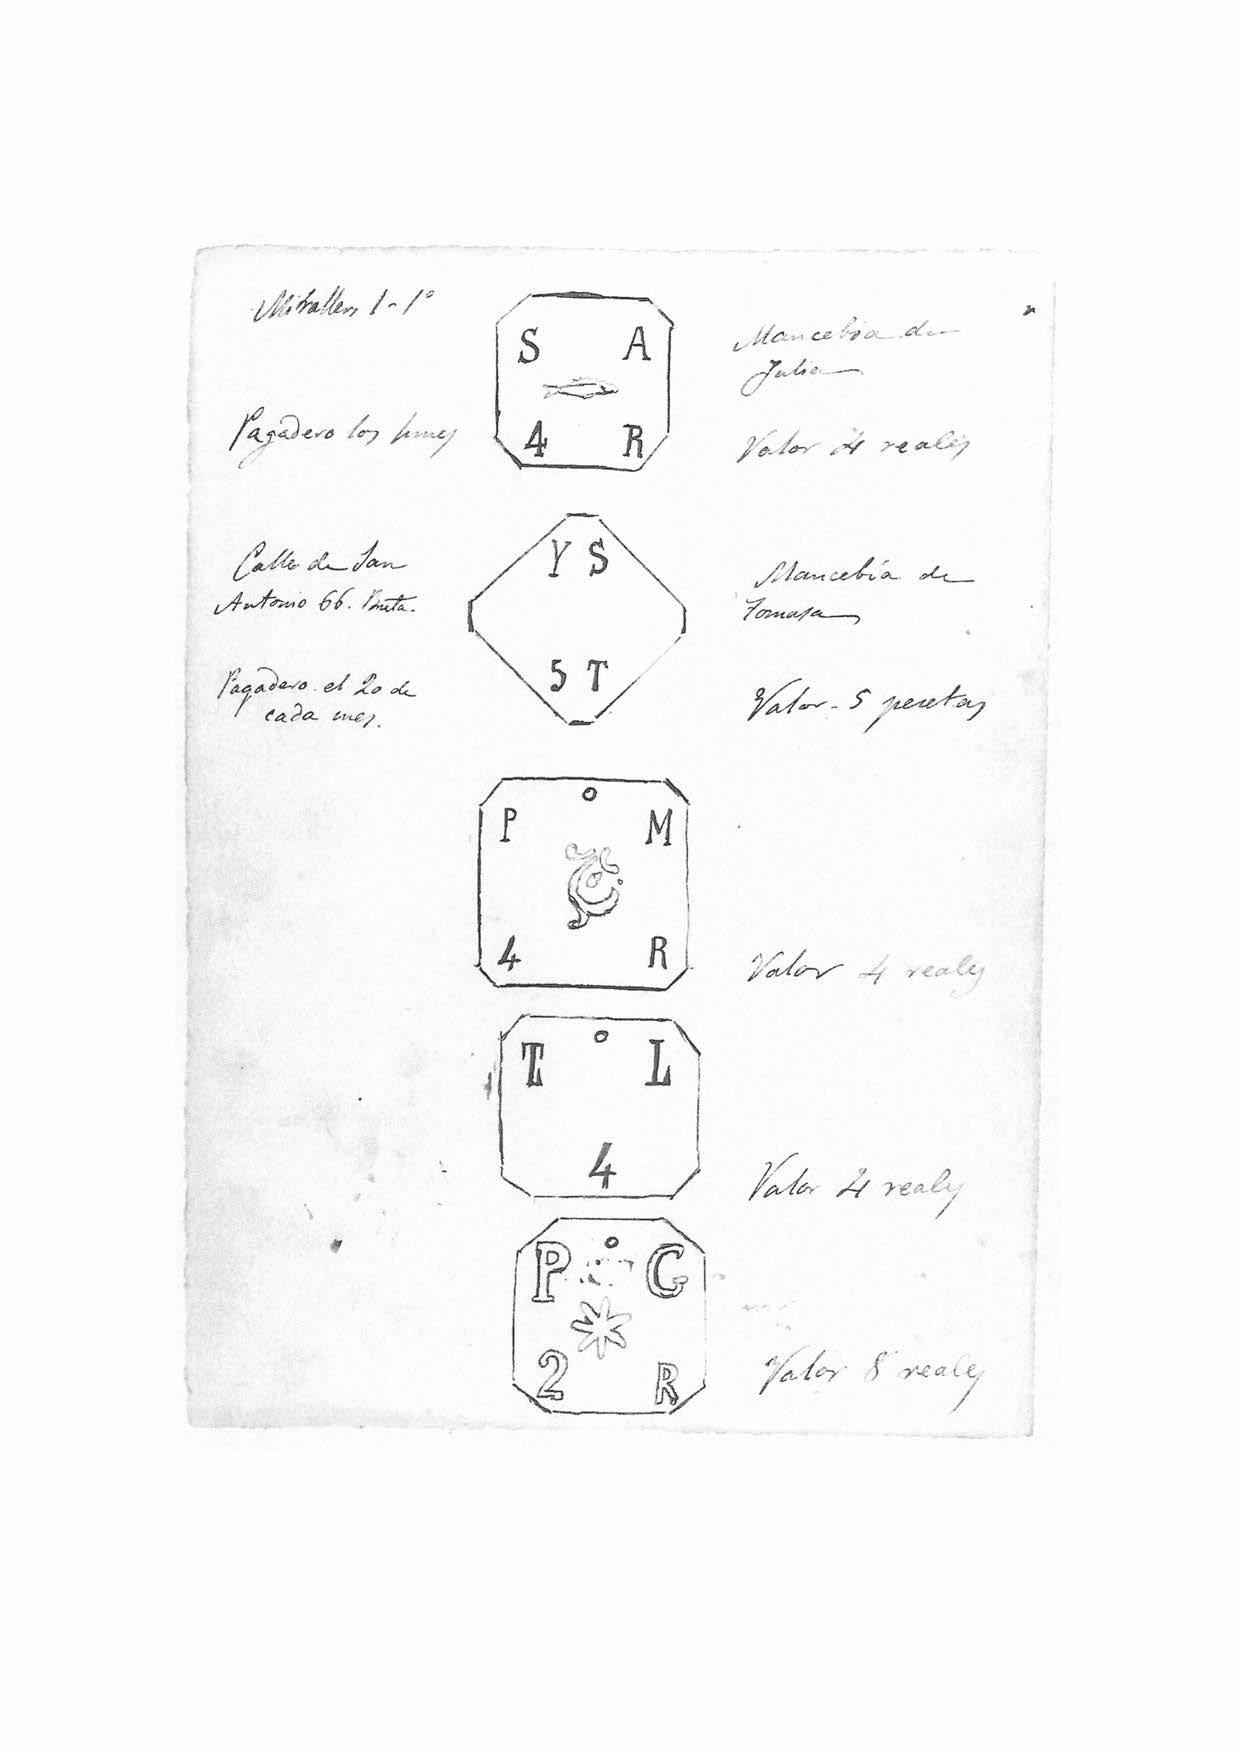 Mirallers 1-1º
S A
Mancebia de
Julia
Pagadero los lunes
4 R
Valor 4 reales
Calle de San
Antonio 66. Bnta.
Y S
Mancebía de
Tomasa
Pagadero el 20 de
cada mes.
5 T
Valor - 5 pesetas
P M
4 R
Valor 4 reales
T L
4
Valor 4 reales
P G
2 R
Valor 8 reales